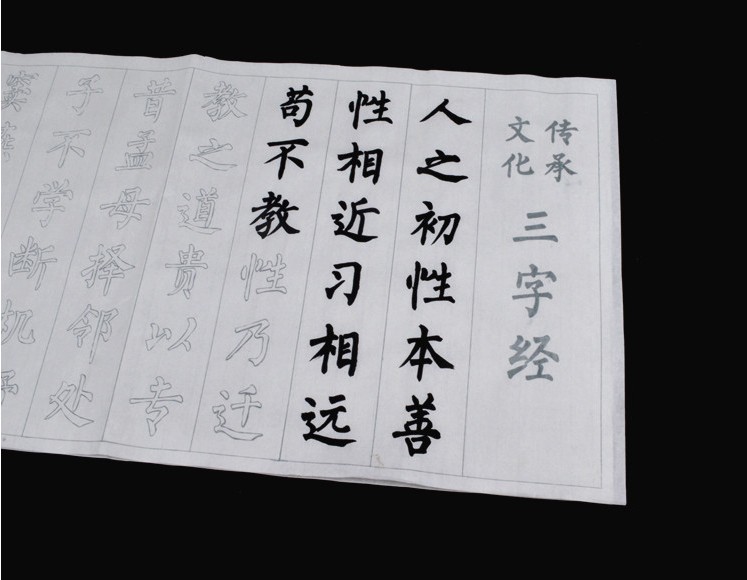 传承
文化
三字经
人之初性本善
性相近习相远
苟不教性乃迁
教之道贵以专
昔孟母择邻处
子不学断机
窦